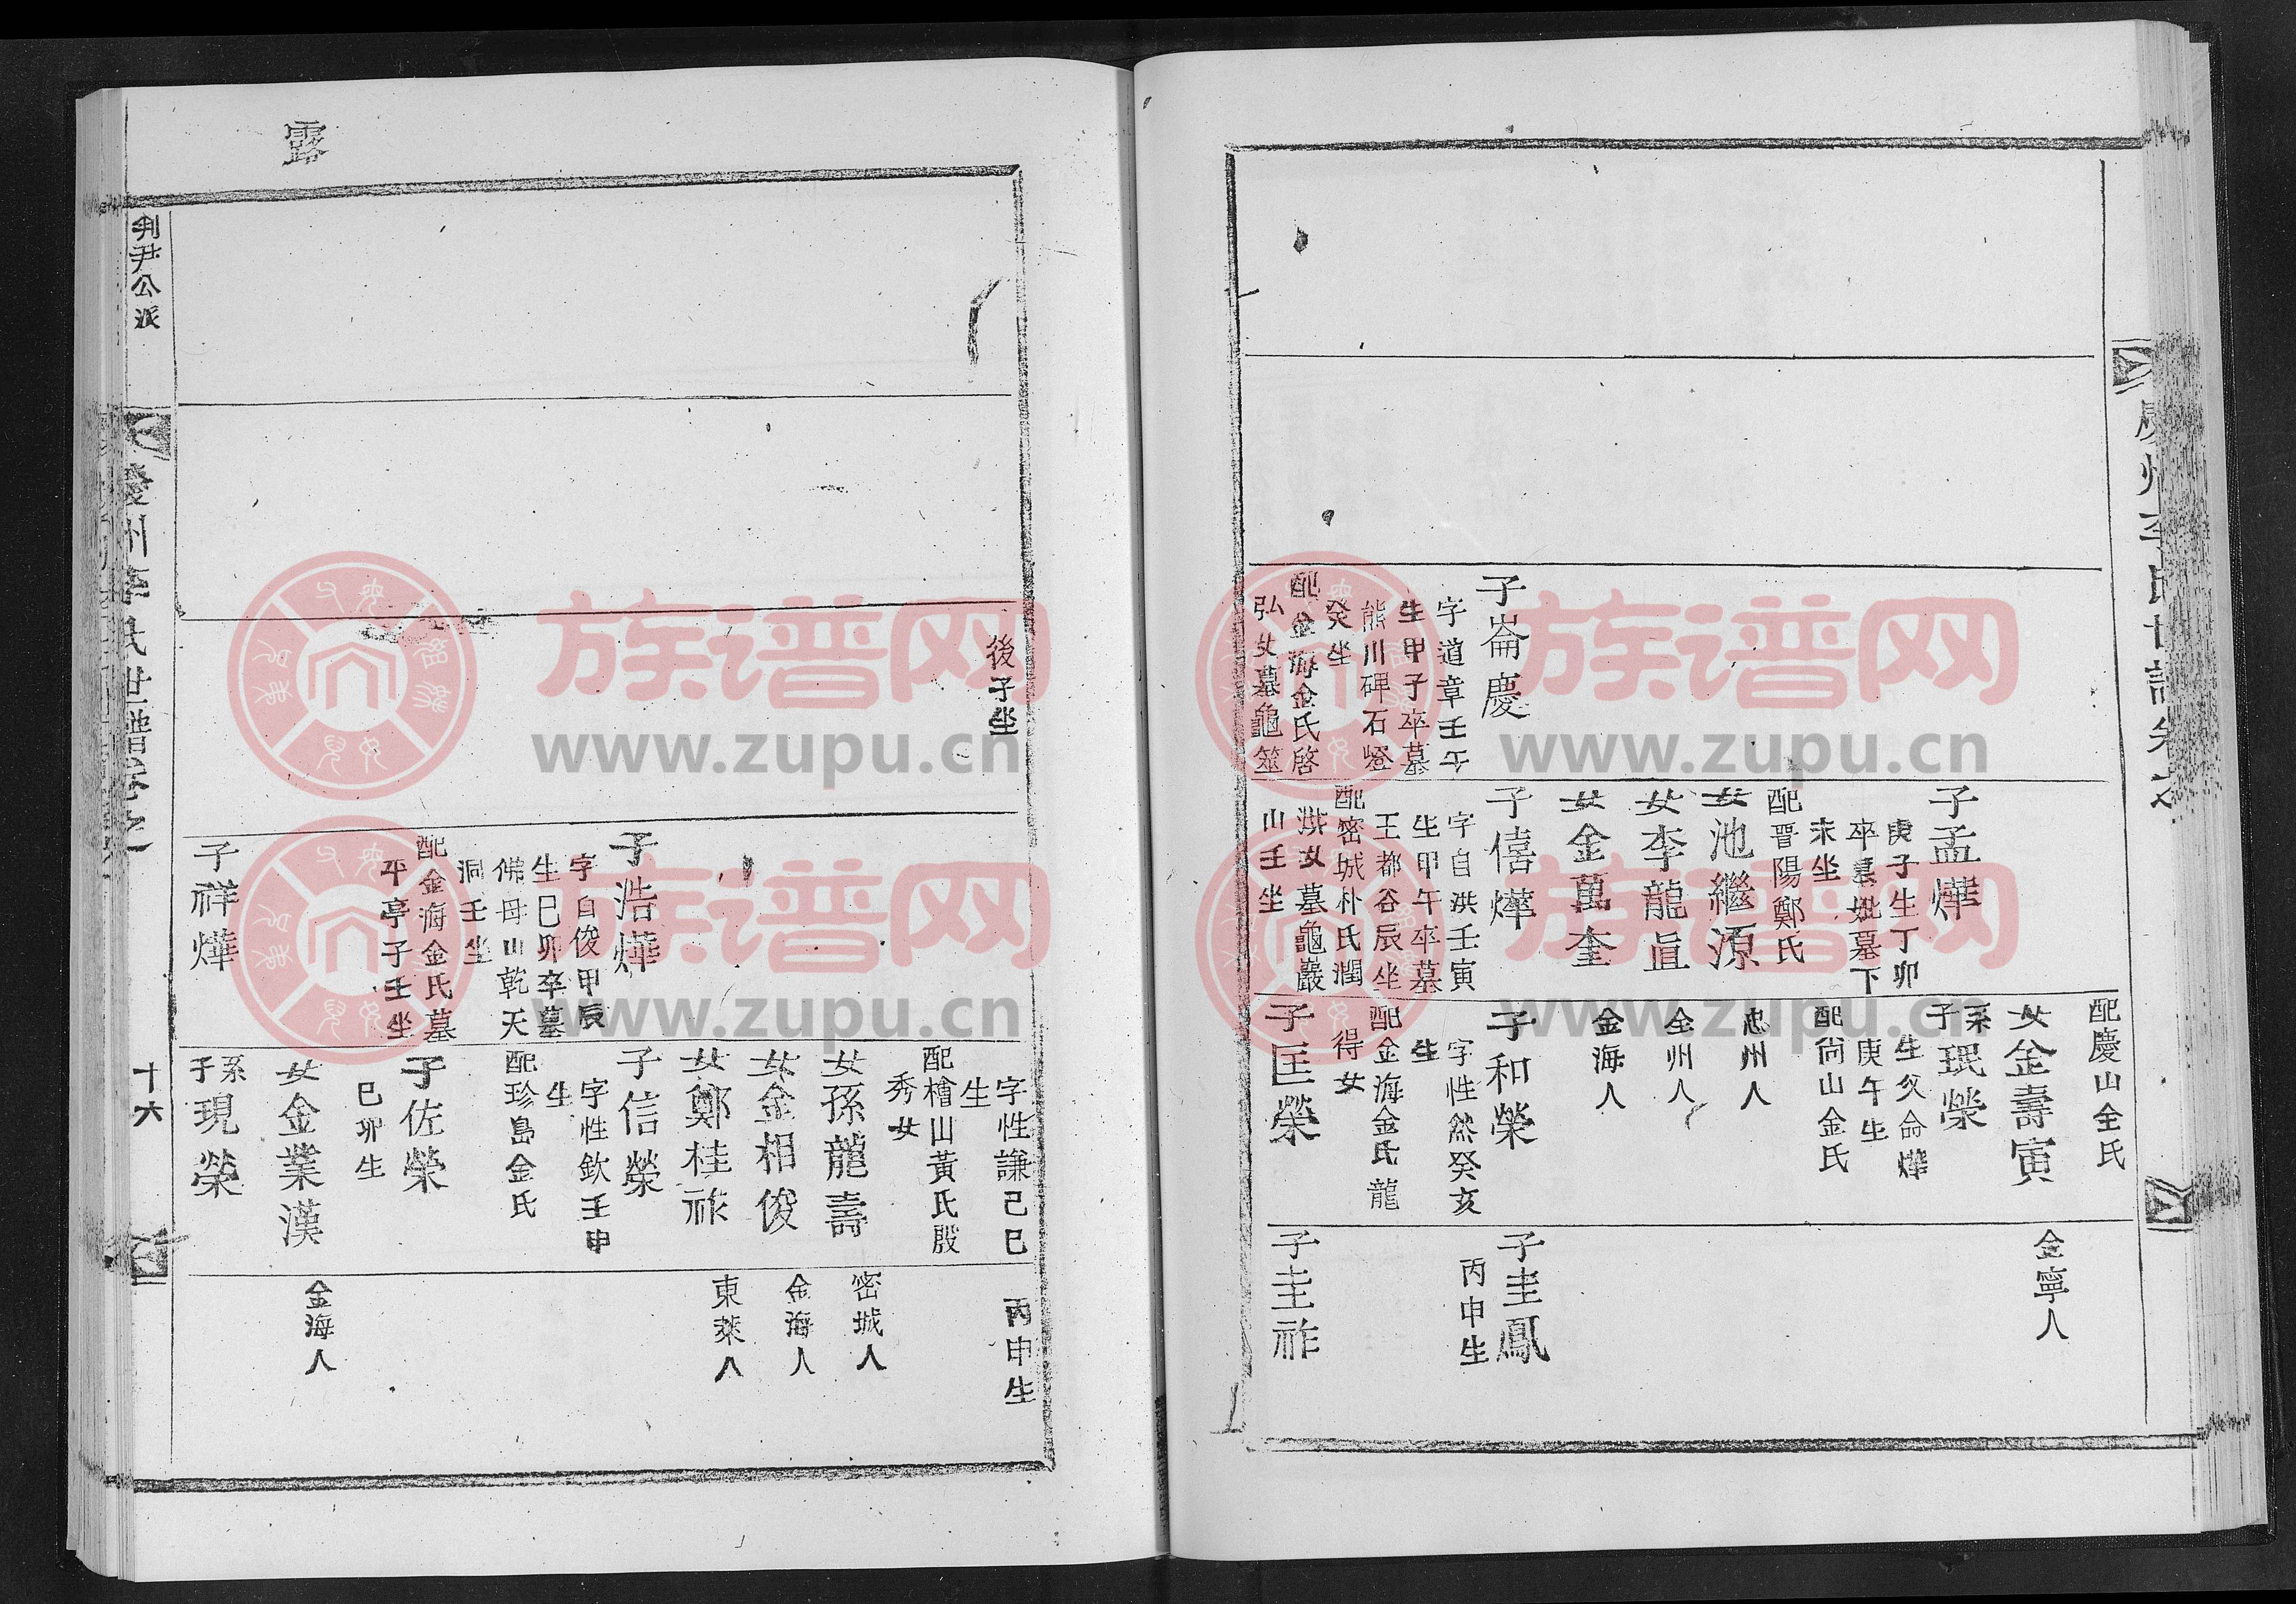 子崙慶
字道章壬午
生甲子卒墓
熊川碑石嶝
癸坐
配金海金氏啓
弘女墓龜筮
子孟燁
庚子生丁卯
卒墓妣墓下
未坐
配晋陽鄭氏
女池繼源
女李龍眞
女金萬奎
子僖燁
字自洪壬寅
生甲午卒墓
王都谷辰坐
配密城朴氏潤
洪女墓龜巖
山壬坐
配慶山全氏
女金壽寅
系子珉榮
生父侖燁
庚午生
配尙山金氏
忠州人
全州人
金海人
子和榮
字性然癸亥
生
配金海金氏龍
得女
子匡榮
金寧人
子圭鳳
丙申生
子圭祚
後子坐
子浩燁
字自俊甲辰
生己卯卒墓
佛母山乾天
洞壬坐
配金海金氏墓
平亭子壬坐
子祥燁
字性謙己巳
生
配檜山黃氏殷
秀女
女孫龍壽
女金相俊
女鄭桂祚
子信榮
字性欽壬申
生
配珍島金氏
子佐榮
己卯生
女金業漢
系子現榮
丙申生
密城人
金海人
東萊人
金海人
判尹公派
慶州李氏世譜卷之
十六
露
族谱网
www.zupu.cn
族谱网
www.zupu.cn
族谱网
www.zupu.cn
族谱网
www.zupu.cn